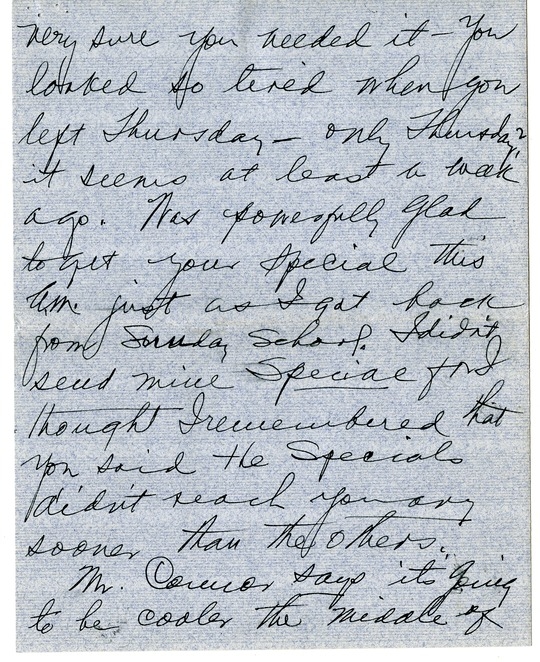 very sure you needed it - You
looked so tired when you
left Thursday - only Thursday?
it seems at least a week
ago. Was powerfully glad
to get your special this
A.M. just as I got back
from Sunday School. I didn't
send mine Special for I
thought I remembered that
you said the Specials
didn't reach you any
sooner than the others.
Mr. Connor says its going
to be cooler the middle of